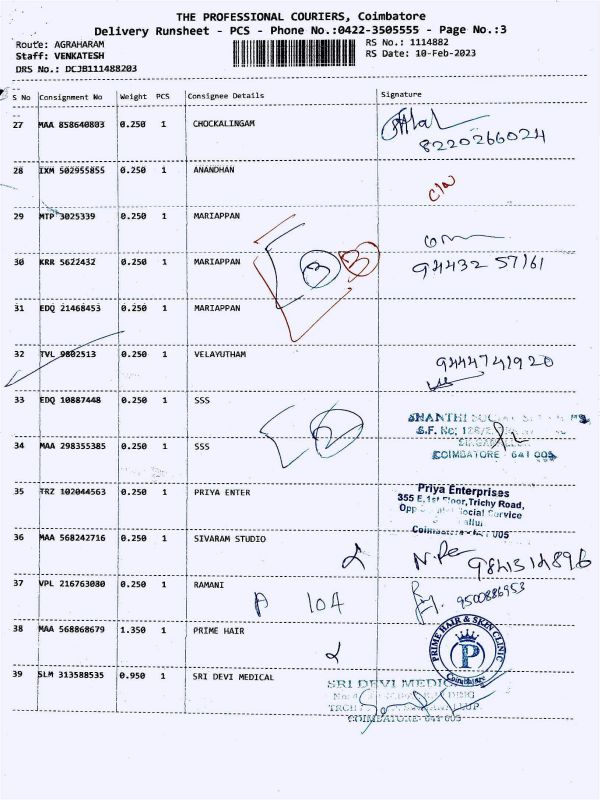 THE PROFESSIONAL COURIERS, Coimbatore
Delivery Runsheet - PCS - Phone No.:0422-3505555 - Page No.:3
Route: AGRAHARAM RS No.: 1114882
Staff: VENKATESH RS Date: 10-Feb-2023
DRS No.: DCJB111488203
S No Consignment No Weight PCS Consignee Details Signature
27 MAA 858640803 0.250 1 CHOCKALINGAM
8220266024
28 IXM 502955855 0.250 1 ANANDHAN
29 MTP 3025339 0.250 1 MARIAPPAN
30 KRR 5622432 0.250 1 MARIAPPAN 3 3 94432 57161
31 EDQ 21468453 0.250 1 MARIAPPAN
32 TVL 9802513 0.250 1 VELAYUTHAM 9444741920
33 EDQ 10887448 0.250 1 SSS
SHANTHI SOCIAL
S.F. No: 128/2
2
34 MAA 298355385 0.250 1 SSS
COIMBATORE 641 005
35 TRZ 102044563 0.250 1 PRIYA ENTER
Priya Enterprises
355 E, 1st Floor, Trichy Road,
Social Service
Coimbatore - 641 005
36 MAA 568242716 0.250 1 SIVARAM STUDIO
37 VPL 216763080 0.250 1 RAMANI 9500886953
A 104
38 MAA 568868679 1.350 1 PRIME HAIR
PRIME HAIR & SKIN CLINIC
P
Coimbatore
39 SLM 313588535 0.950 1 SRI DEVI MEDICAL
SRI DEVI MEDICAL
COIMBATORE-641 005